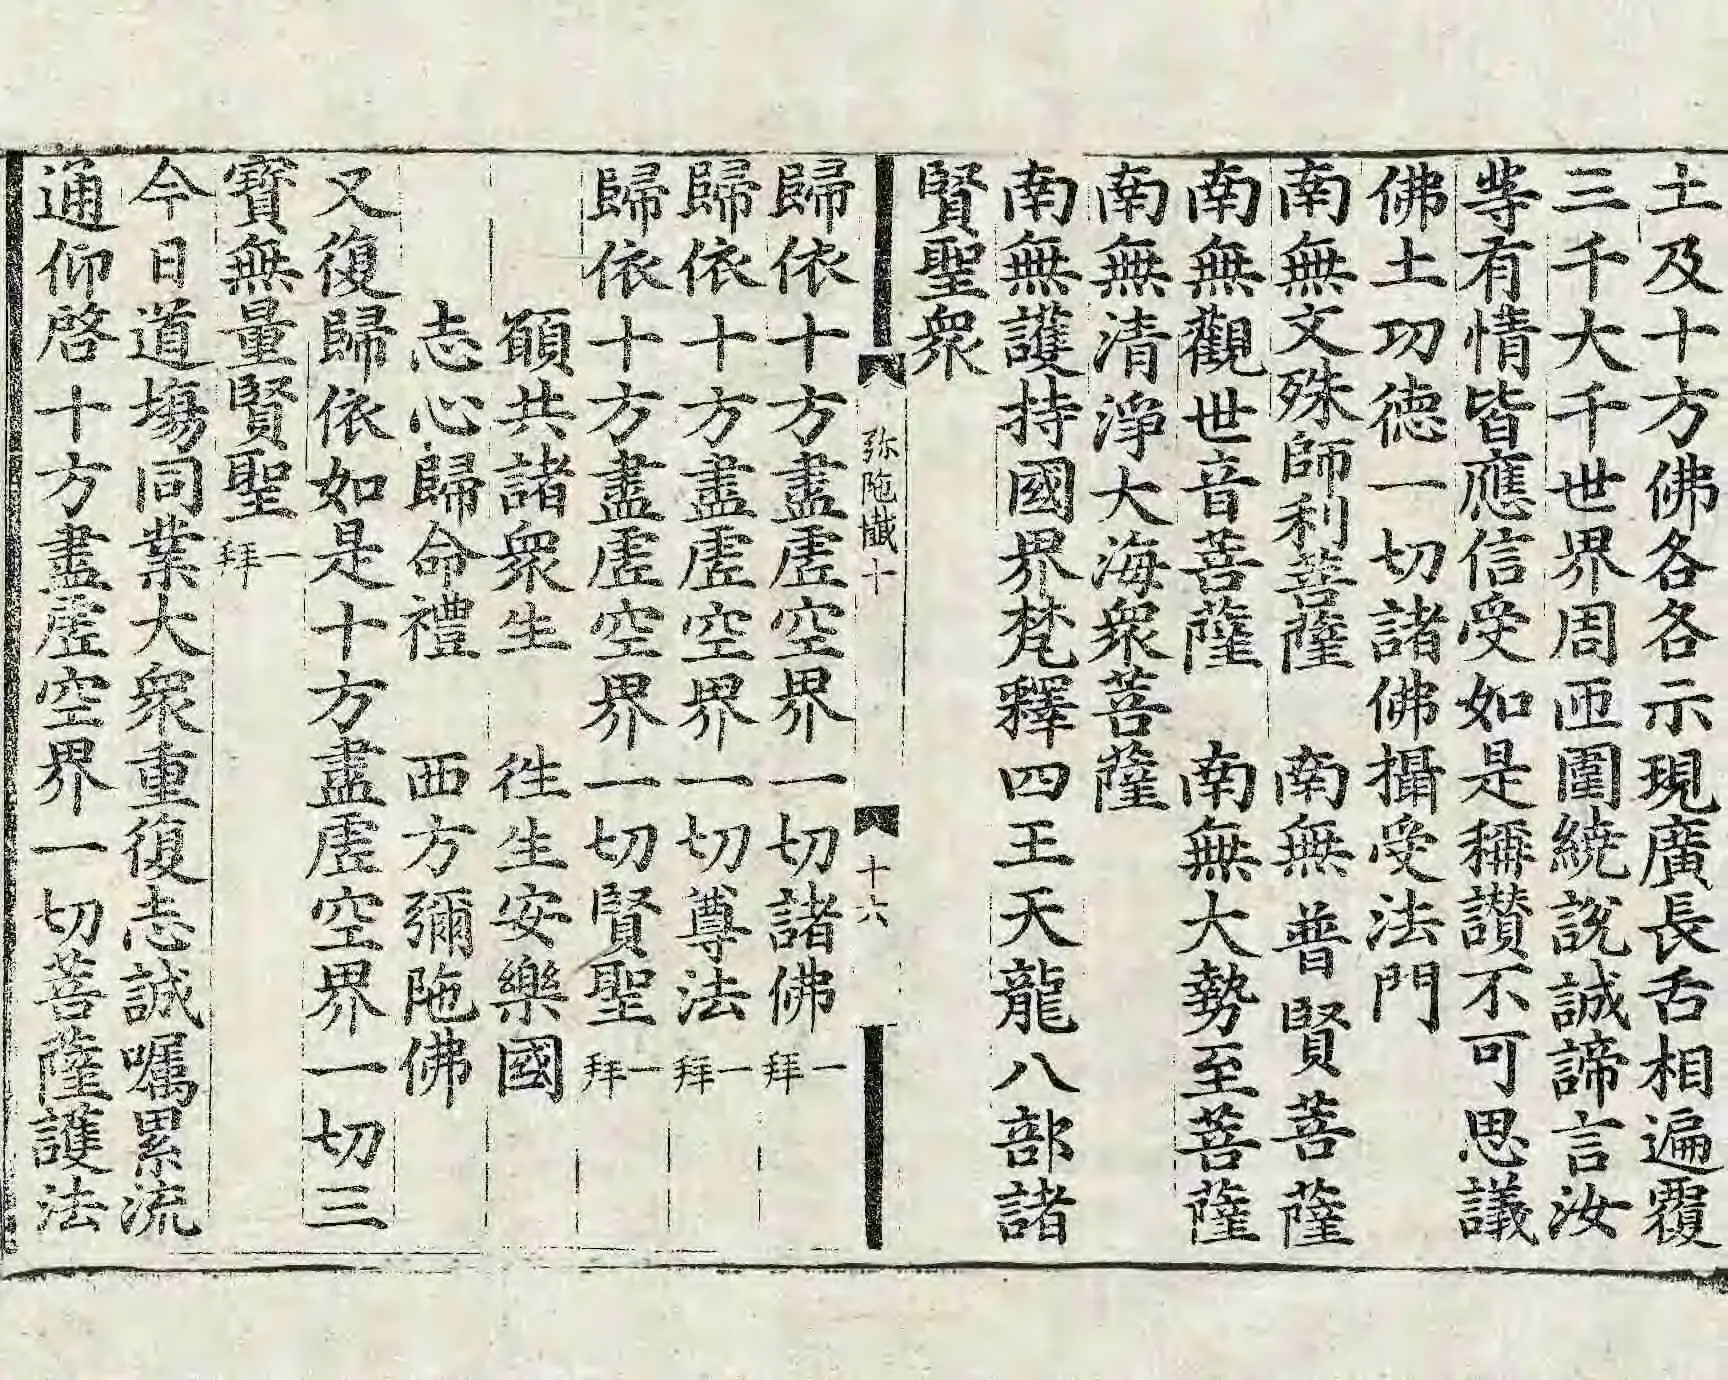 土及十方佛各各示現廣長舌相遍覆
三千大千世界周匝圍繞說誠諦言汝
等有情皆應信受如是稱讃不可思議
佛土功德一切諸佛攝受法門
南無文殊師利菩薩　南無普賢菩薩
南無觀世音菩薩　南無大勢至菩薩
南無清淨大海衆菩薩
南無護持國界梵釋四王天龍八部諸
賢聖衆
弥陁懺十　十六
歸依十方盡虛空界一切諸佛一拜
歸依十方盡虛空界一切尊法一拜
歸依十方盡虛空界一切賢聖一拜
願共諸衆生　徃生安樂國
志心歸命禮　西方彌陁佛
又復歸依如是十方盡虛空界一切三
寳無量賢聖一拜
今日道塲同業大衆重復志誠囑累流
通仰啓十方盡虛空界一切菩薩護法